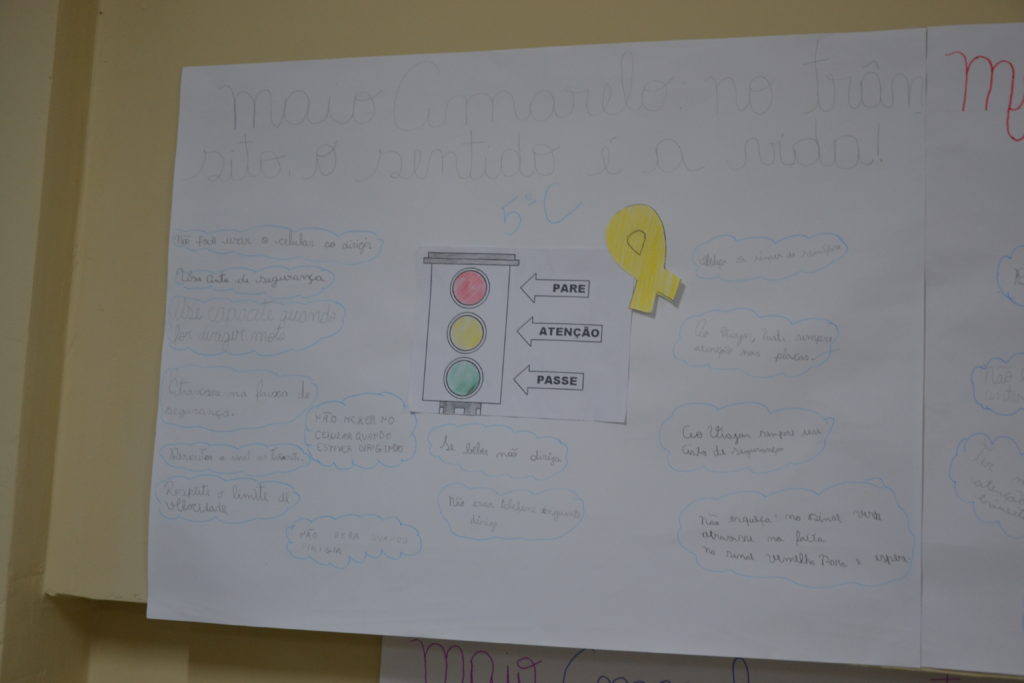 maio Amarelo: no trân
sito, o sentido é a vida!
5º C
Não pode usar o celular ao dirigir
Use cinto de segurança
Use capacete quando
for dirigir moto
Atravesse na faixa de
segurança.
NÃO MEXER NO
CELULAR QUANDO
ESTIVER DIRIGINDO
Respeitar o sinal de trânsito
Respeite o limite de
velocidade
NÃO BEBA QUANDO
DIRIGIR
PARE
ATENÇÃO
PASSE
Se beber não dirija
Não usar telefone enquanto
dirige
sempre
atenção nas placas.
Ao Viajar sempre use
cinto de segurança
Não esqueça: no sinal verde
atravesse na faixa
no sinal vermelho Para e espera
M
Não
Ter
maio Amarelo